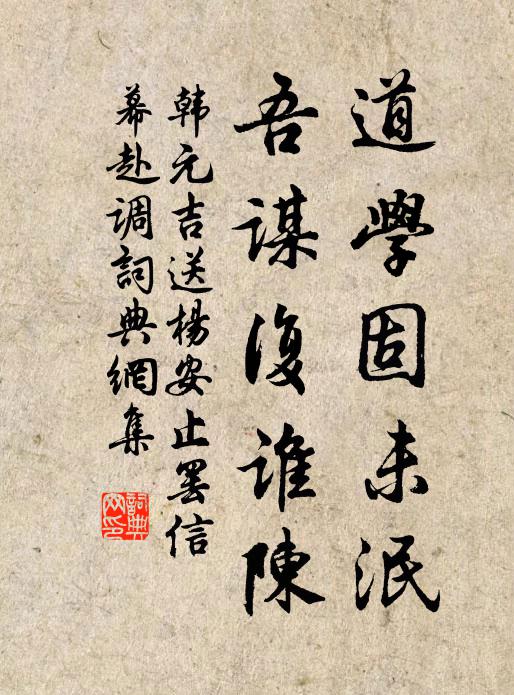 道學固未泯
吾謀復誰陳
韩元吉送楊安止罢信
幕赴调詞典網集
詞典网印